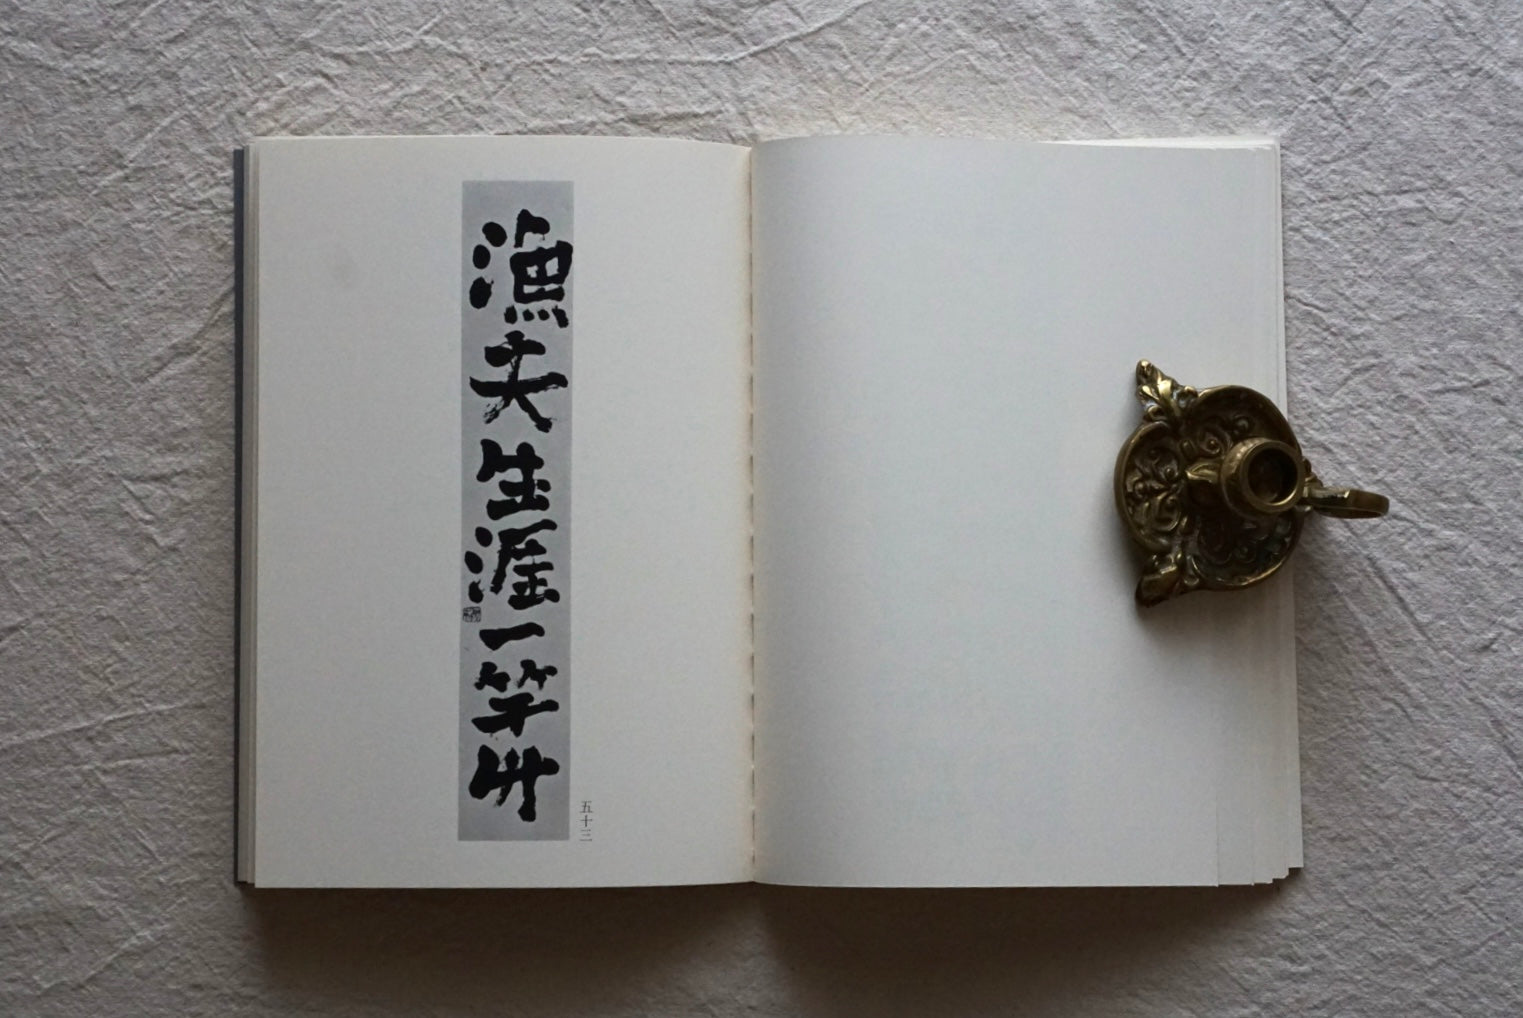 漁夫生涯一竿竹
五十三